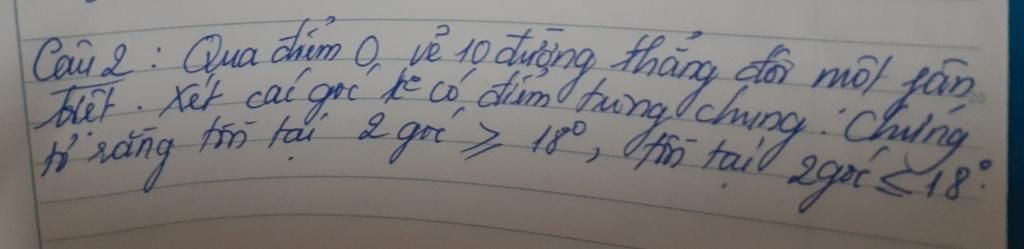 Câu 2 : Qua điểm O, vẽ 10 đường thẳng đôi một phân
biệt. Xét các góc kề có điểm trung chung. Chứng
tỏ rằng tồn tại 2 góc ≥ 18°, tồn tại 2 góc ≤ 18°.